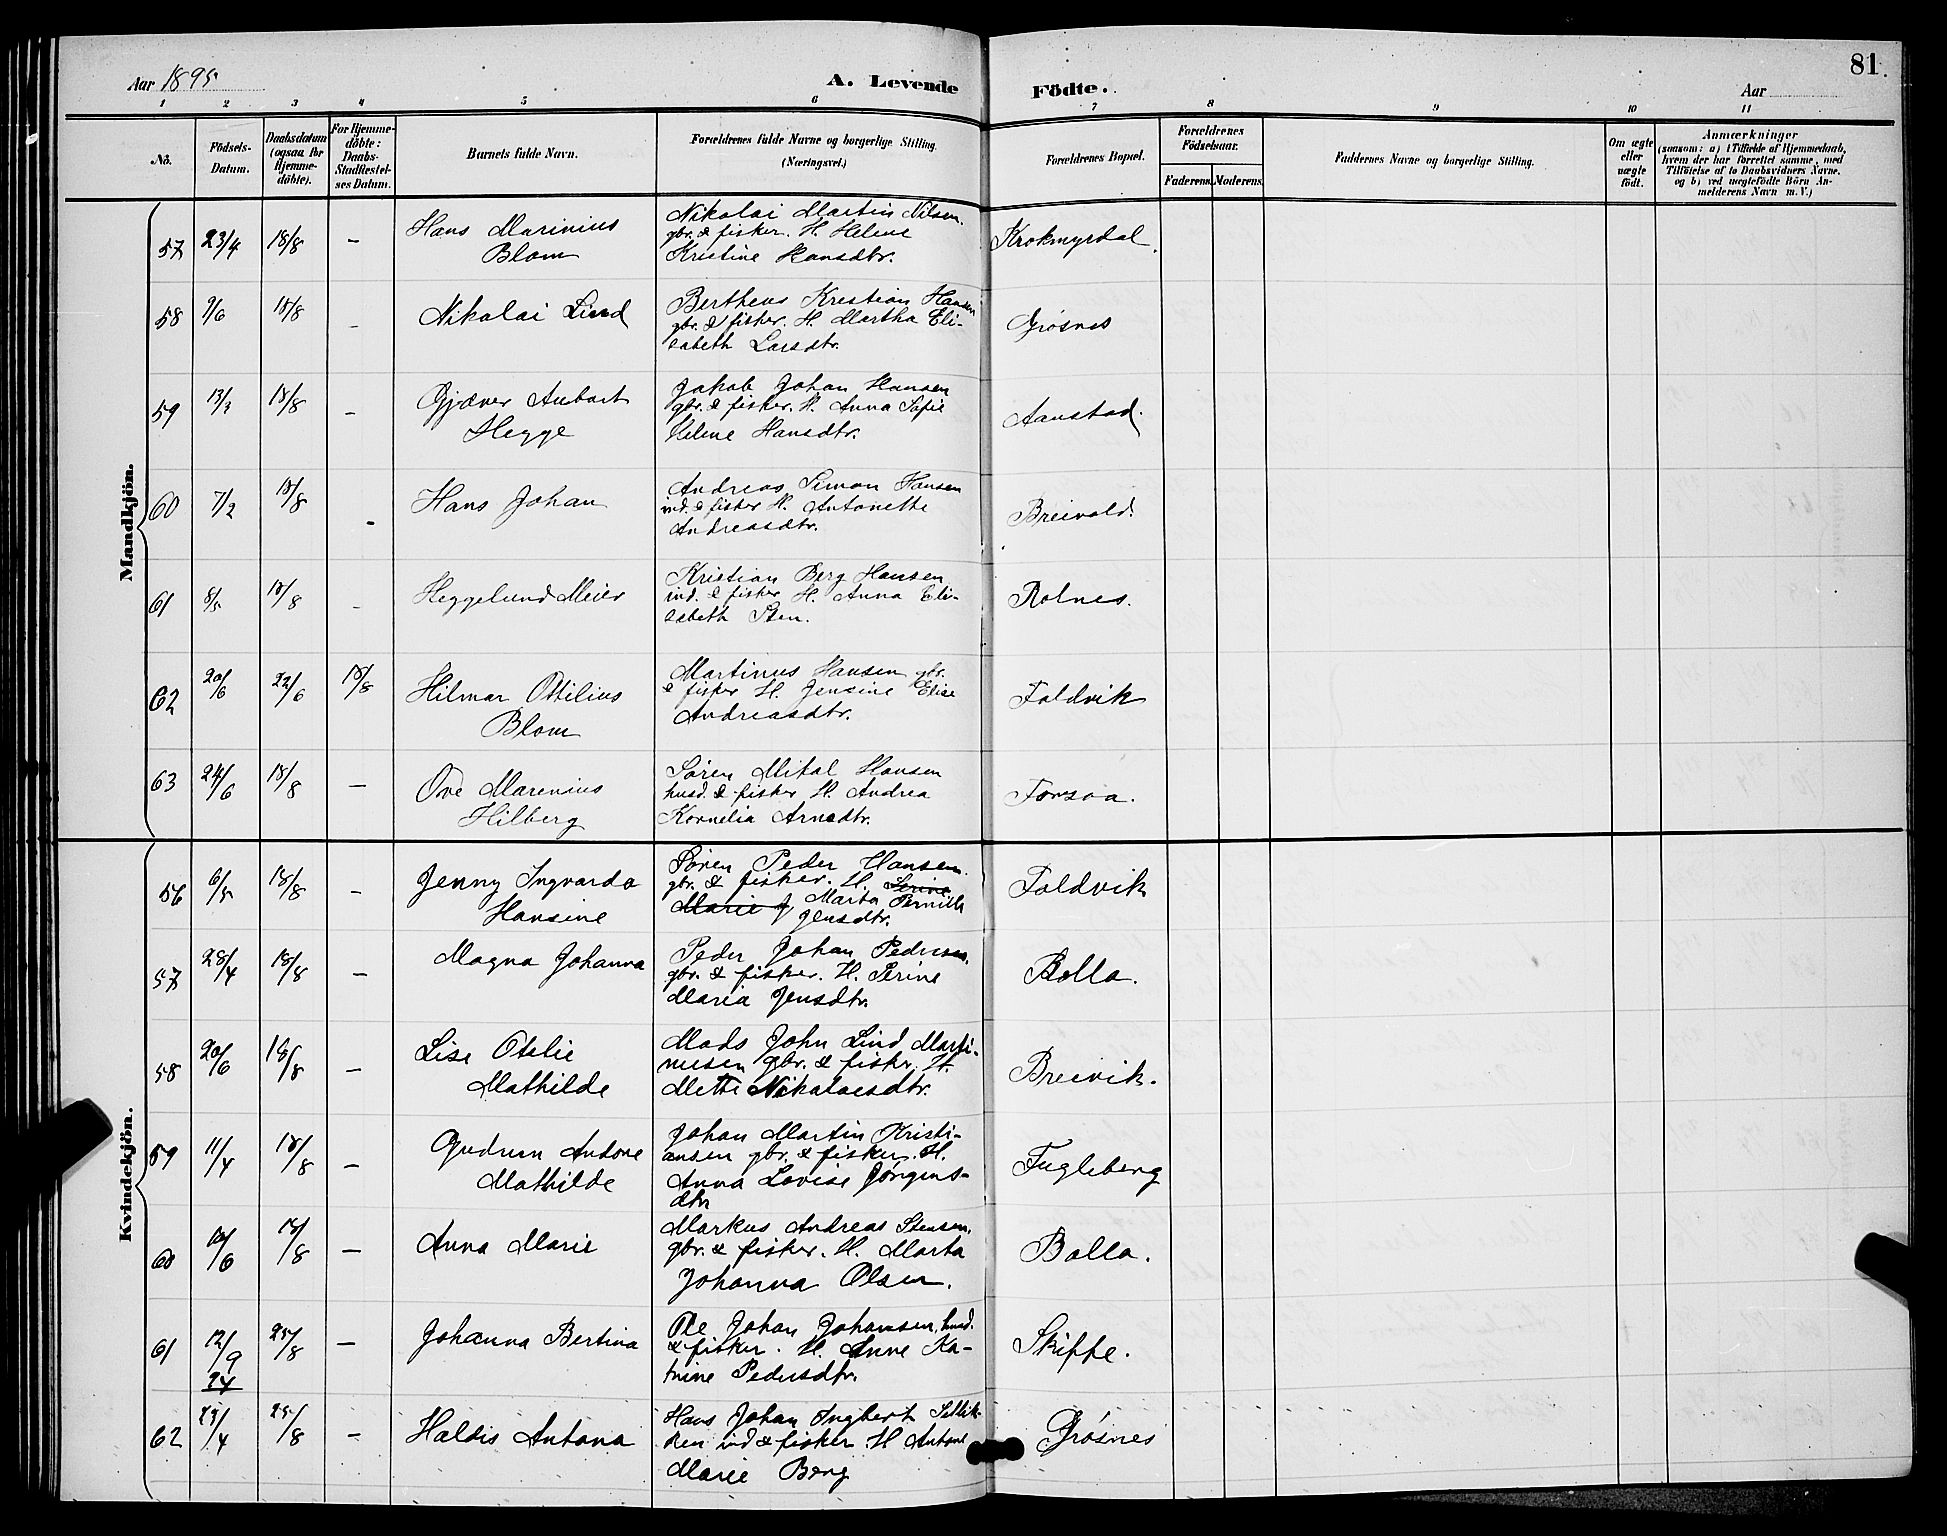 Aar 1895
A. Levende Födte.
Aar
81.
1 2 3 4 5 6 7 8 9 10 11
No.
Födsels-
Datum.
Daabsdatum
(ogsaa for
Hjemme-
döbte).
For Hjemme-
döbte:
Daabs-
Stadfestel-
ses Datum.
Barnets fulde Navn.
Forældrenes fulde Navne og borgerlige Stilling.
(Næringsvei.)
Forældrenes Bopæl.
Forældrenes
Födselsaar.
Faderens. Moderens.
Faddernes Navne og borgerlige Stilling.
Om ægte
eller
uægte
födt.
Anmærkninger
(saasom: a) i Tilfælde af Hjemmedaab,
hvem der har forrettet samme, med
Tilföielse af to Daabsvidners Navne,
og b) ved uægtefödte Börn An-
melderens Navn m. V.)
Mandkjön.
57 23/4 18/8 — Hans Marinius
Blom
Nikolai Martin Nilsen
gbr. & fisker. H. Helene
Kristine Hansdtr.
Krokmyrdal.
58 9/6 18/8 — Nikolai Lind
Bertheus Kristian Hansen
gbr. & fisker. H. Martha Eli-
sabeth Larsdtr.
Grøsnes
59 13/3 18/8 — Gjæver Anbart
Hegge
Jakob Johan Hansen
gbr. & fisker. H. Anna Sofie
Helene Hansdtr.
Aanstad.
60 7/2 18/8 - Hans Johan
Andreas Simon Hansen
ind. & fisker H. Antonette
Andreasdtr.
Breivold.
61 8/5 18/8 - Heggelund Meier
Kristian Berg Hansen
ind. & fisker H. Anna Eli-
sabeth Sten.
Rolnes.
62 20/6 22/6 18/8 Hilmar Ottilius
Blom
Martinus Hansen gbr.
& fisker H. Jensine Elise
Andreasdtr.
Foldvik
63 24/6 18/8 — Ove Marenius
Hilberg
Søren Mikal Hansen
husd. & fisker H. Andrea
Kornelia Arnsdtr.
Forsaa.
Kvindekjön.
56 6/5 18/8 - Jenny Ingvarda
Hansine
Søren Peder Hansen.
gbr. & fisker. H. Serine
Marie J Marta Pernille
Jensdtr.
Foldvik
57 28/4 18/8 — Magna Johanna
Peder Johan Pedersen.
gbr. & fisker. H. Serine
Maria Jensdtr.
Bolla.
58 20/6 18/8 — Lise Otelie
Mathilde
Mads John Lind Marti-
nusen gbr. & fisker. H.
Mette Nikolaesdtr.
Breivik.
59 11/4 18/8 — Gudrun Antone
Mathilde
Johan Martin Kristi-
ansen gbr. & fisker. H.
Anna Lovise Jørgens-
dtr
Fugleberg
60 10/6 18/8 — Anna Marie
Markus Andreas Stensen.
gbr. & fisker. H. Marta
Johanna Olsen.
Balla.
61 12/9 94 25/8 — Johanna Bertina
Ole Johan Johansen, husd.
& fisker. H. Anne Ka-
trine Pedersdtr.
Skippe.
62 23/4 25/8 — Haldis Antona
Hans Johan Ingbert
ind & fisker H Antone
Marie Berg
Grøsnes